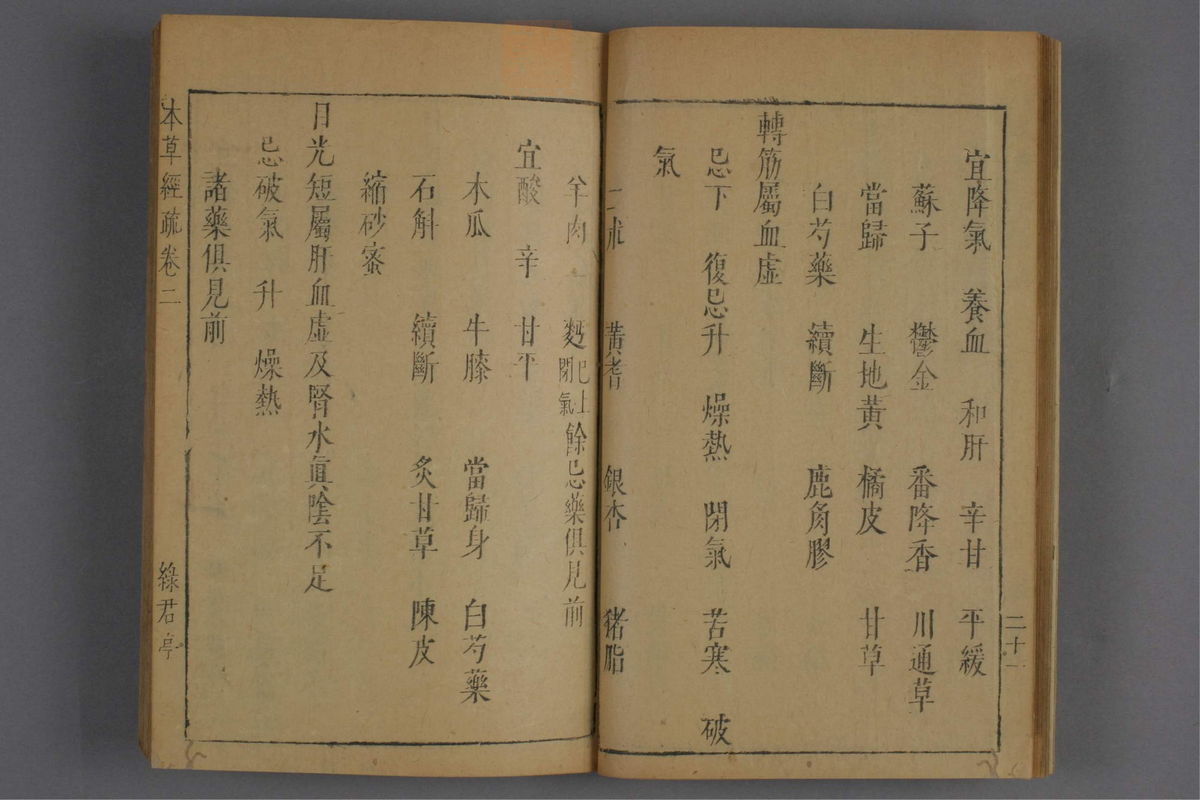 宜降氣　養血　和肝　辛甘　平緩
蘇子　鬱金　番降香　川通草
當歸　生地黃　橘皮　甘草
白芍藥　續斷　鹿角膠
轉筋屬血虛
忌下　復忌升　燥熱　閉氣　苦寒　破
氣
二术　黃耆　銀杏　猪脂
羊肉　麪已上閉氣餘忌藥俱見前
宜酸　辛　甘平
木瓜　牛膝　當歸身　白芍藥
石斛　續斷　炙甘草　陳皮
縮砂蜜
目光短屬肝血虛及腎水眞陰不足
忌破氣　升　燥熱
諸藥俱見前
本草經疏卷二　綠君亭
二十一